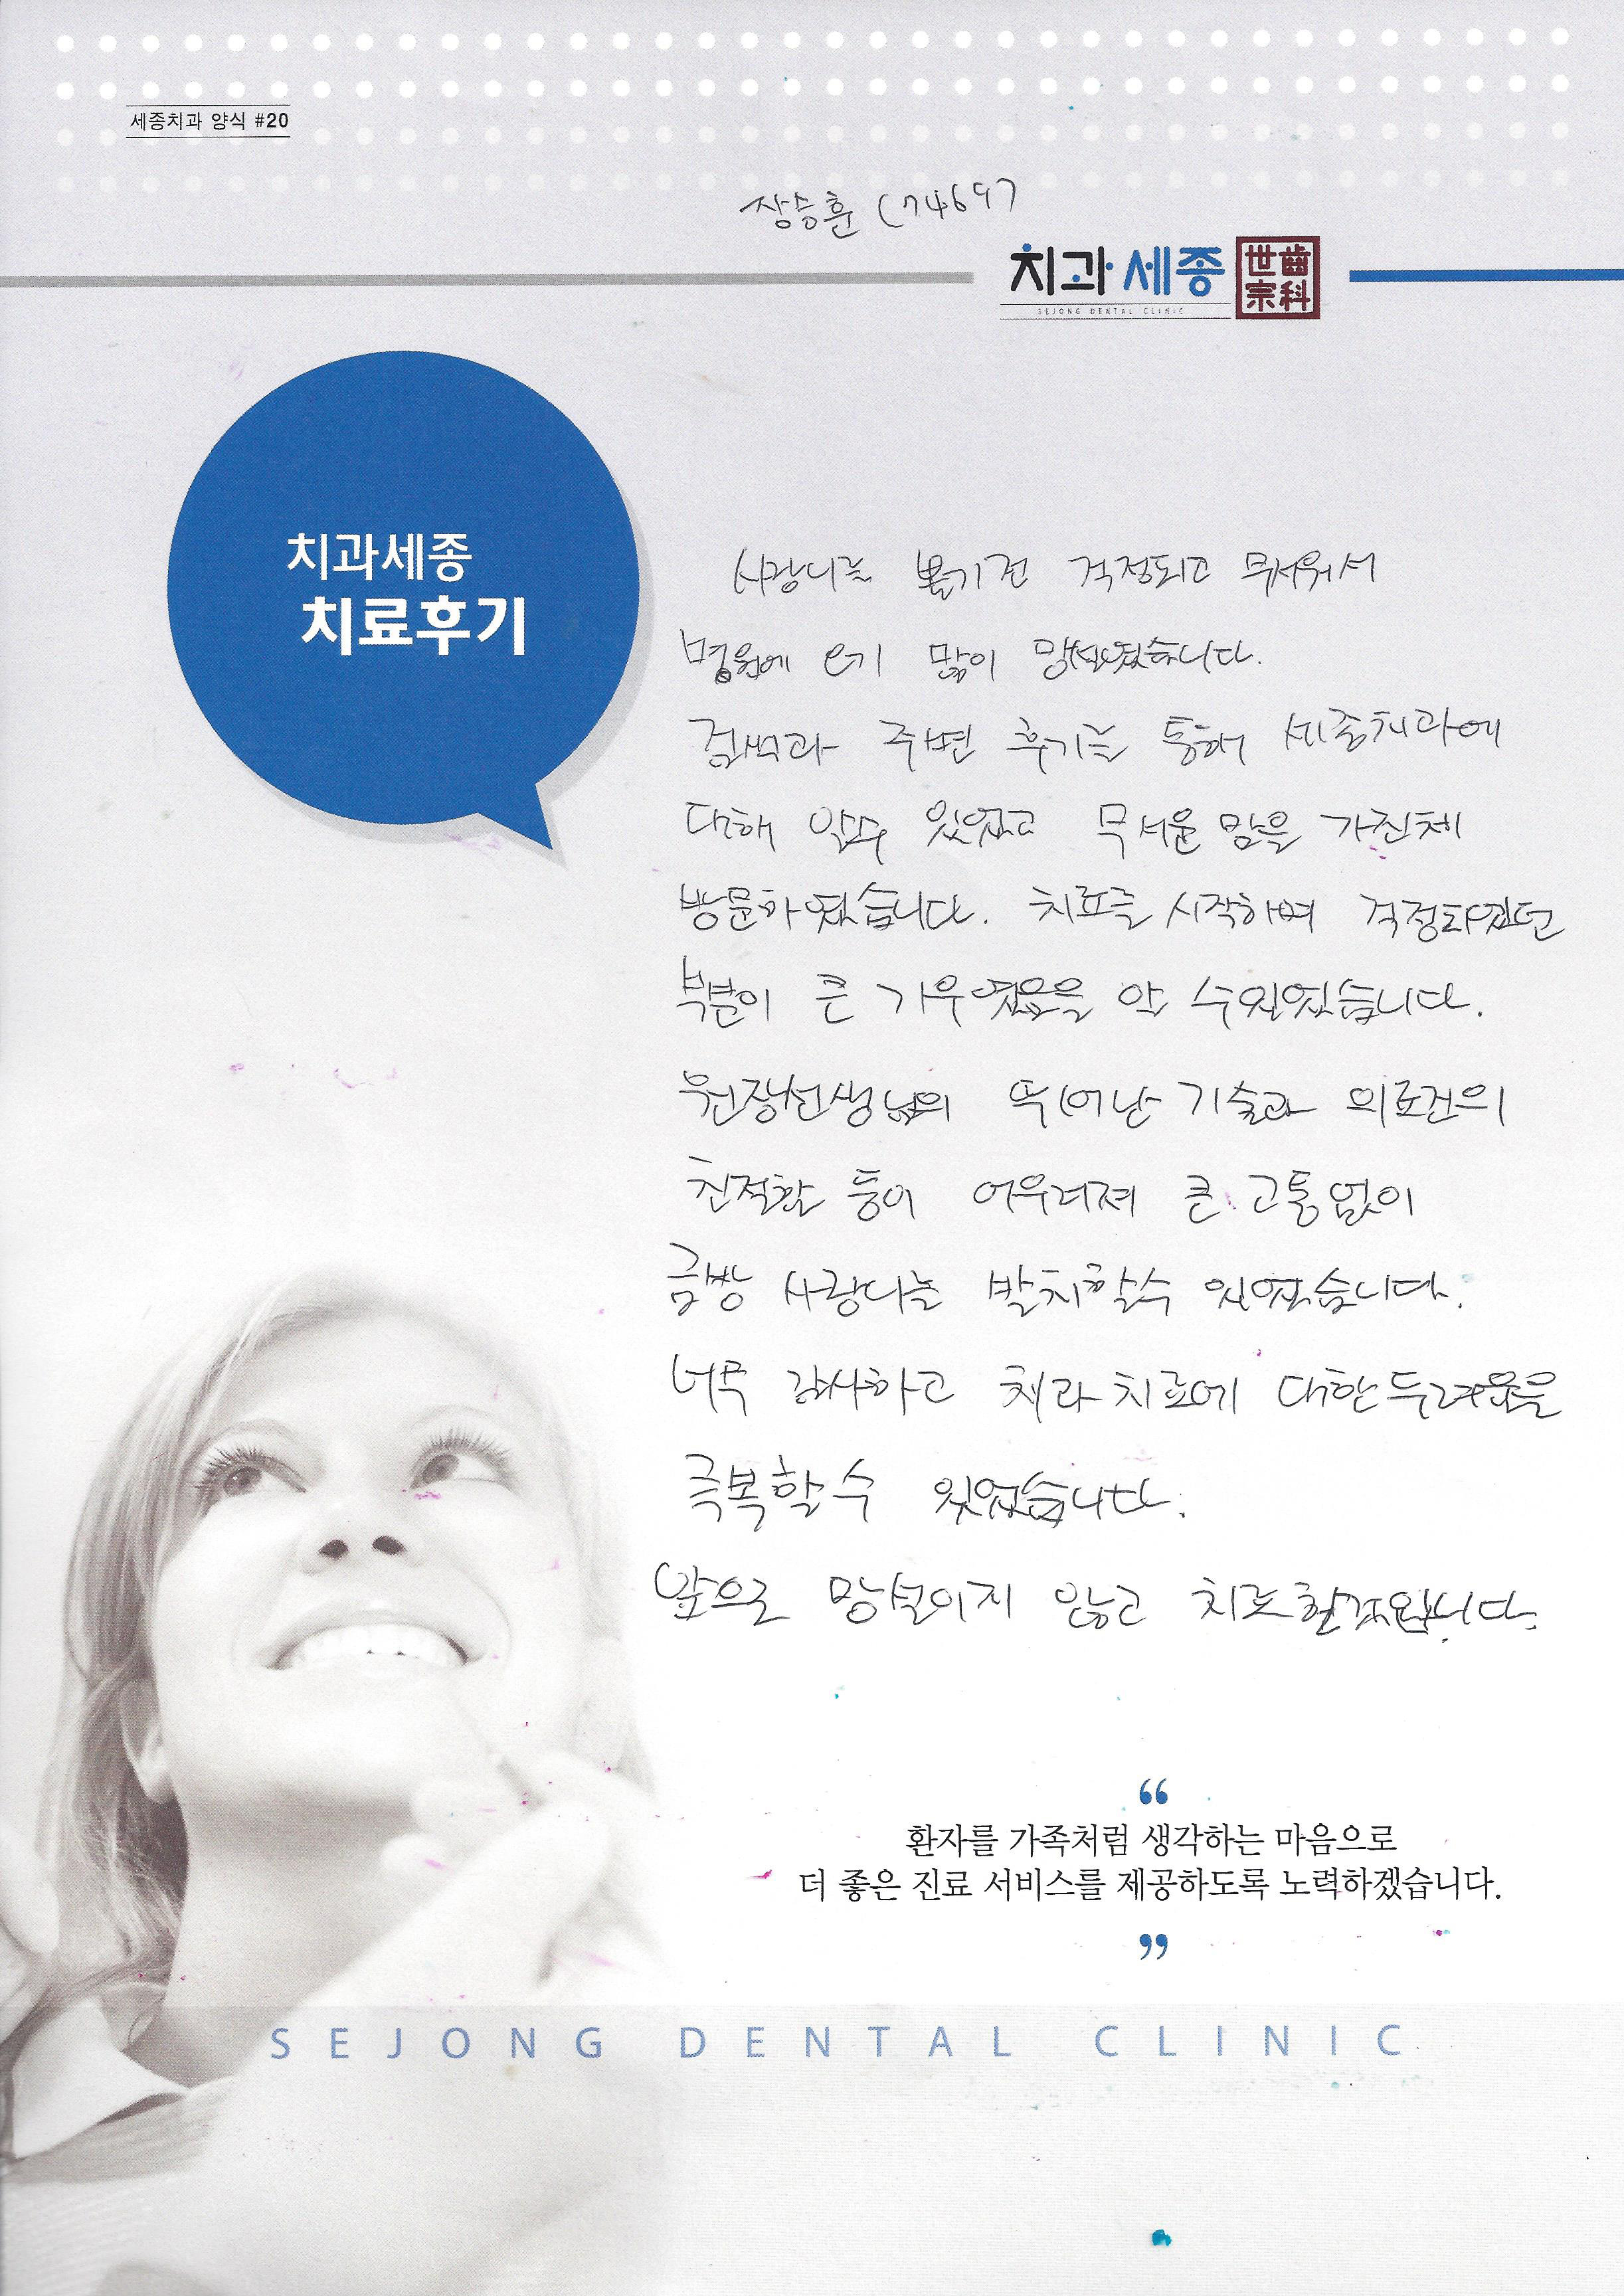 세종치과 양식 #20
장승훈 (7469)
치과세종
世齒
宗科
SEJONG DENTAL CLINIC
치과세종
치료후기
사랑니를 뽑기전 걱정되고 무서워서
병원에 오기 많이 망설였습니다.
검색과 주변 후기를 통해 세종치과에
대해 알수 있었고 무서운 맘을 가진체
방문하였습니다. 치료를 시작하며 걱정되었던
부분이 큰 기우였음을 알 수있었습니다.
원장선생님의 뛰어난 기술과 의료진의
친절함 등이 어우러져 큰 고통없이
금방 사랑니를 발치할수 있었습니다.
너무 감사하고 치과 치료에 대한 두려움을
극복할 수 있었습니다.
앞으로 망설이지 않고 치료할것입니다.
“
환자를 가족처럼 생각하는 마음으로
더 좋은 진료 서비스를 제공하도록 노력하겠습니다.
”
SEJONG DENTAL CLINIC